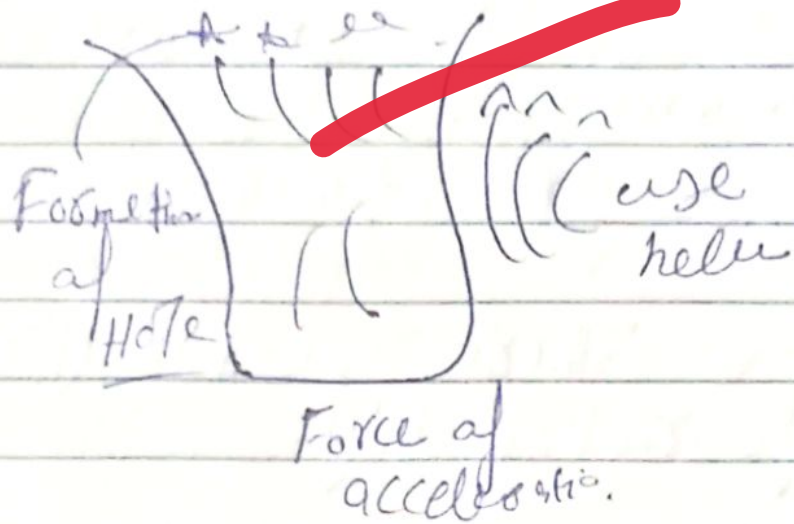 Formation
of
Hole
use
Force of
acceleratio.